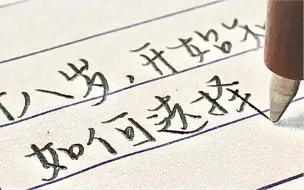 八岁，开始
如何选择